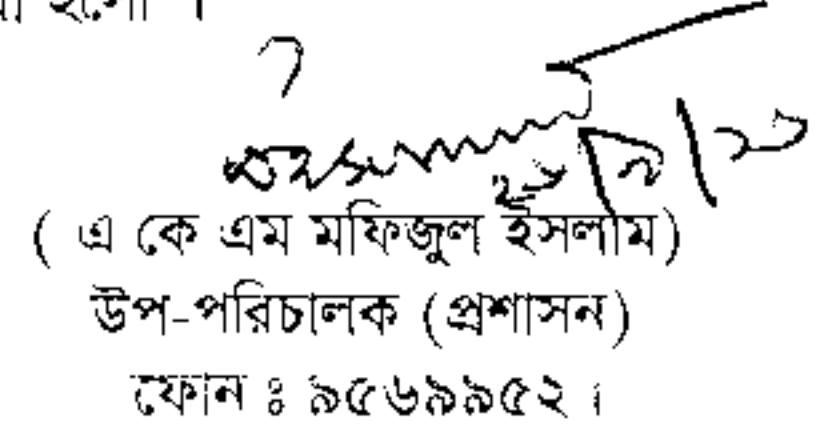 হলো ।
( এ কে এম মফিজুল ইসলাম)
উপ-পরিচালক (প্রশাসন)
ফোন ঃ ৯৫৬৯৯৫২ ।